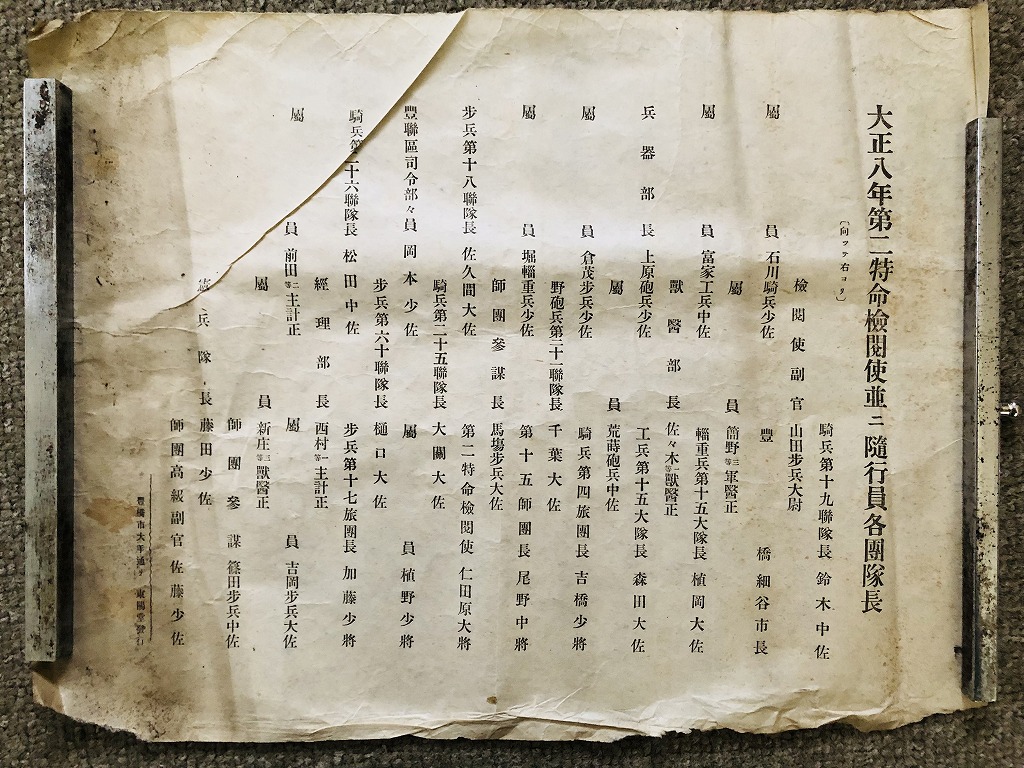 大正八年第二特命檢閱使並ニ隨行員各團隊長
(向ッテ右ヨリ)
騎兵第十九聯隊長 鈴木中佐
檢閱使副官 山田步兵大尉
屬員 石川騎兵少佐
豐橋細谷市長
屬員 筒野三等軍醫正
屬員 富家工兵中佐
輜重兵第十五大隊長 植岡大佐
獸醫部長 佐々木一等獸醫正
兵器部長 上原砲兵少佐
工兵第十五大隊長 森田大佐
屬員 荒蒔砲兵中佐
屬員 倉茂步兵少佐
騎兵第四旅團長 吉橋少將
野砲兵第二十一聯隊長 千葉大佐
屬員 堀輜重兵少佐
第十五師團長 尾野中將
師團參謀長 馬塲步兵大佐
步兵第十八聯隊長 佐久間大佐
第二特命檢閱使 仁田原大將
騎兵第二十五聯隊長 大關大佐
豐聯區司令部々員 岡本少佐
屬員 植野少將
步兵第六十聯隊長 樋口大佐
騎兵第二十六聯隊長 松田中佐
步兵第十七旅團長 加藤少將
經理部長 西村一等主計正
屬員 前田二等主計正
屬員 吉岡步兵大佐
屬員 新庄三等獸醫正
師團參謀 篠田步兵中佐
兵隊長 藤田少佐
師團高級副官 佐藤少佐
豐橋市大手通リ 東陽堂發行